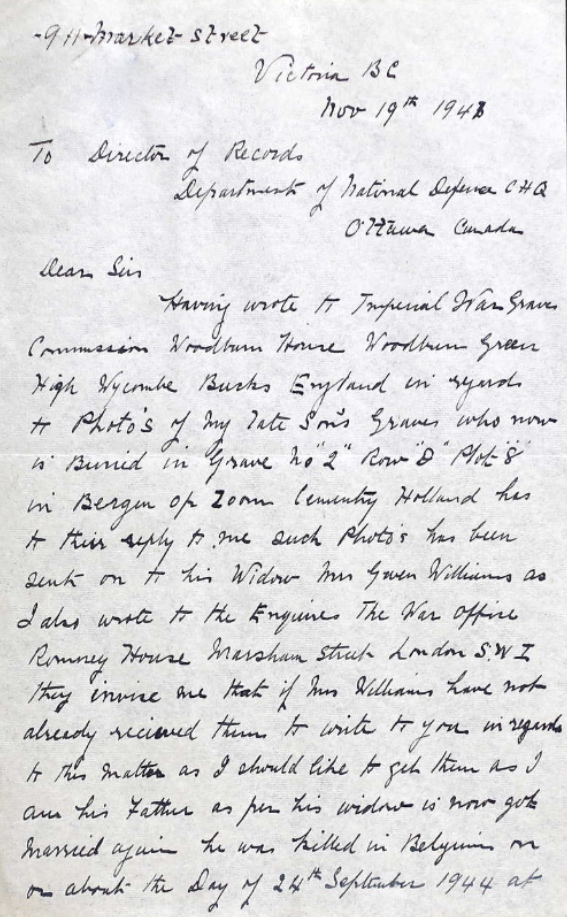 -911-Market Street
Victoria BC
Nov 19th 194
To Director of Records
Department of National Defence CHQ
Ottawa Canada
Dear Sir
Having wrote to Imperial War Graves
Commission Woodburn House Woodburn Green
High Wycombe Bucks England in regards
to Photo's of my late Son's Graves who now
is Buried in Grave No "2" Row "D" Plot "8"
in Bergen op Zoom Cementry Holland has
to their reply to me such Photo's has been
sent on to his Widow Mrs Gwen Williams as
I also wrote to the Enquires The War Office
Romney House Marsham Street London S.W I
they invise me that if Mrs Williams have not
already recieved them to write to you in regards
to this matter as I should like to get them as I
am his Father as per his widow is now got
married again he was killed in Belgium on
or about the Day of 24th September 1944 at